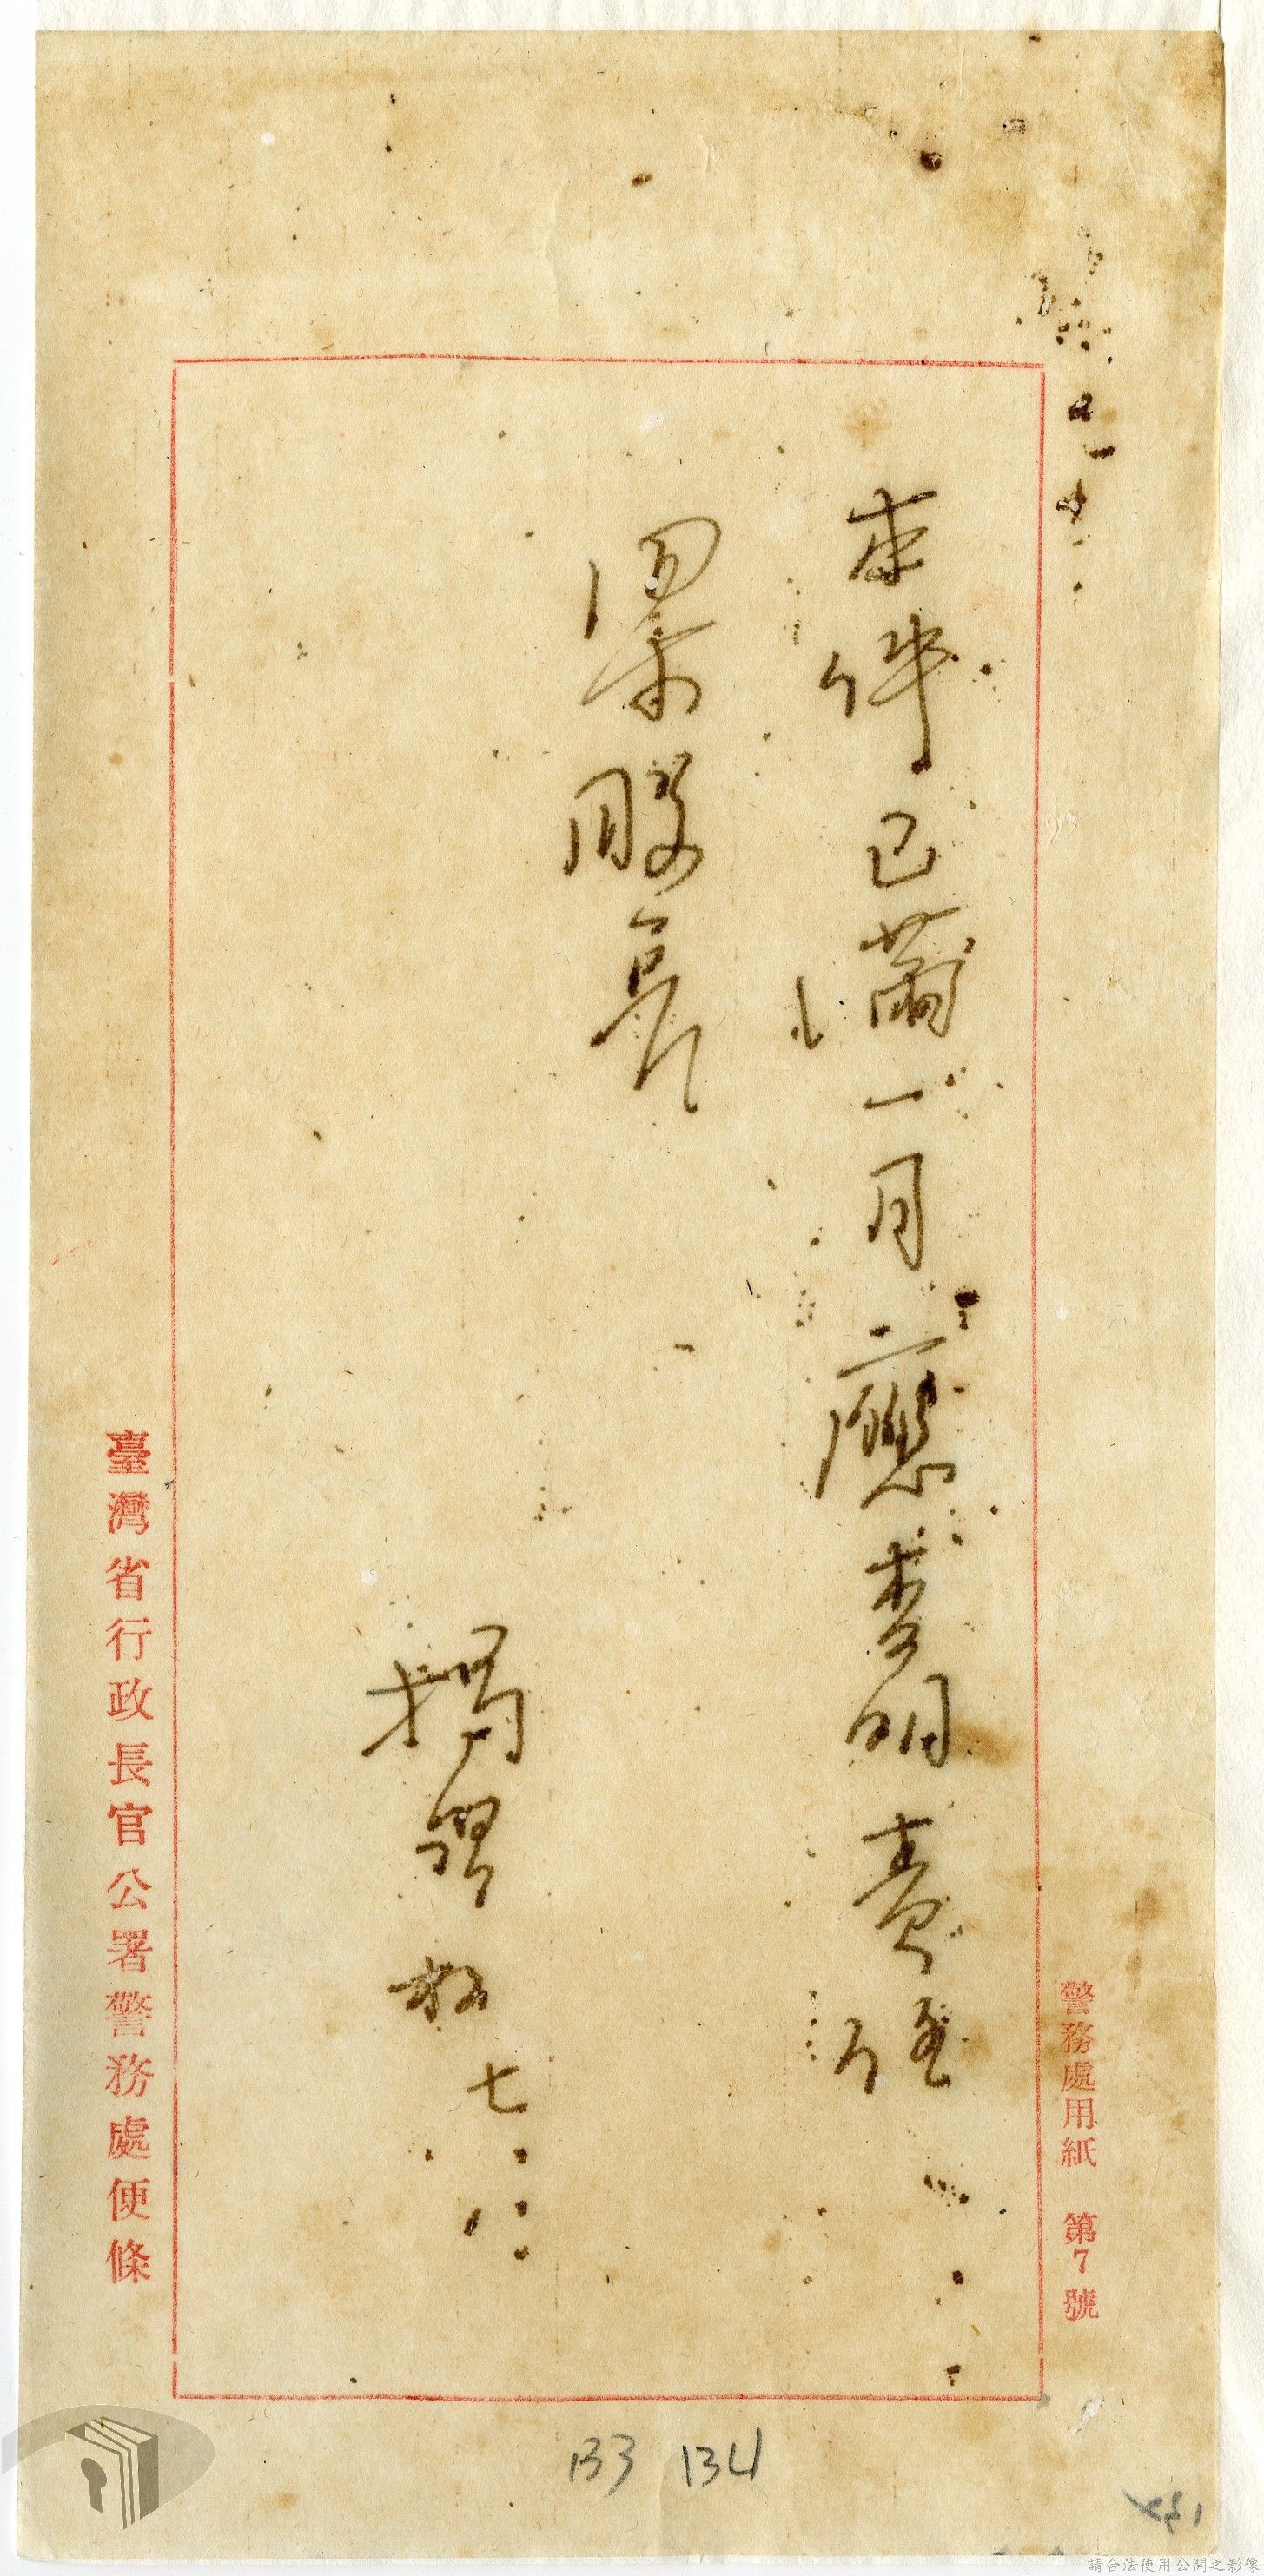 警務處用紙 第7號
本件已滿一月應查明責任
股長
七.八.
臺灣省行政長官公署警務處便條
133 134
請合法使用公開之影像